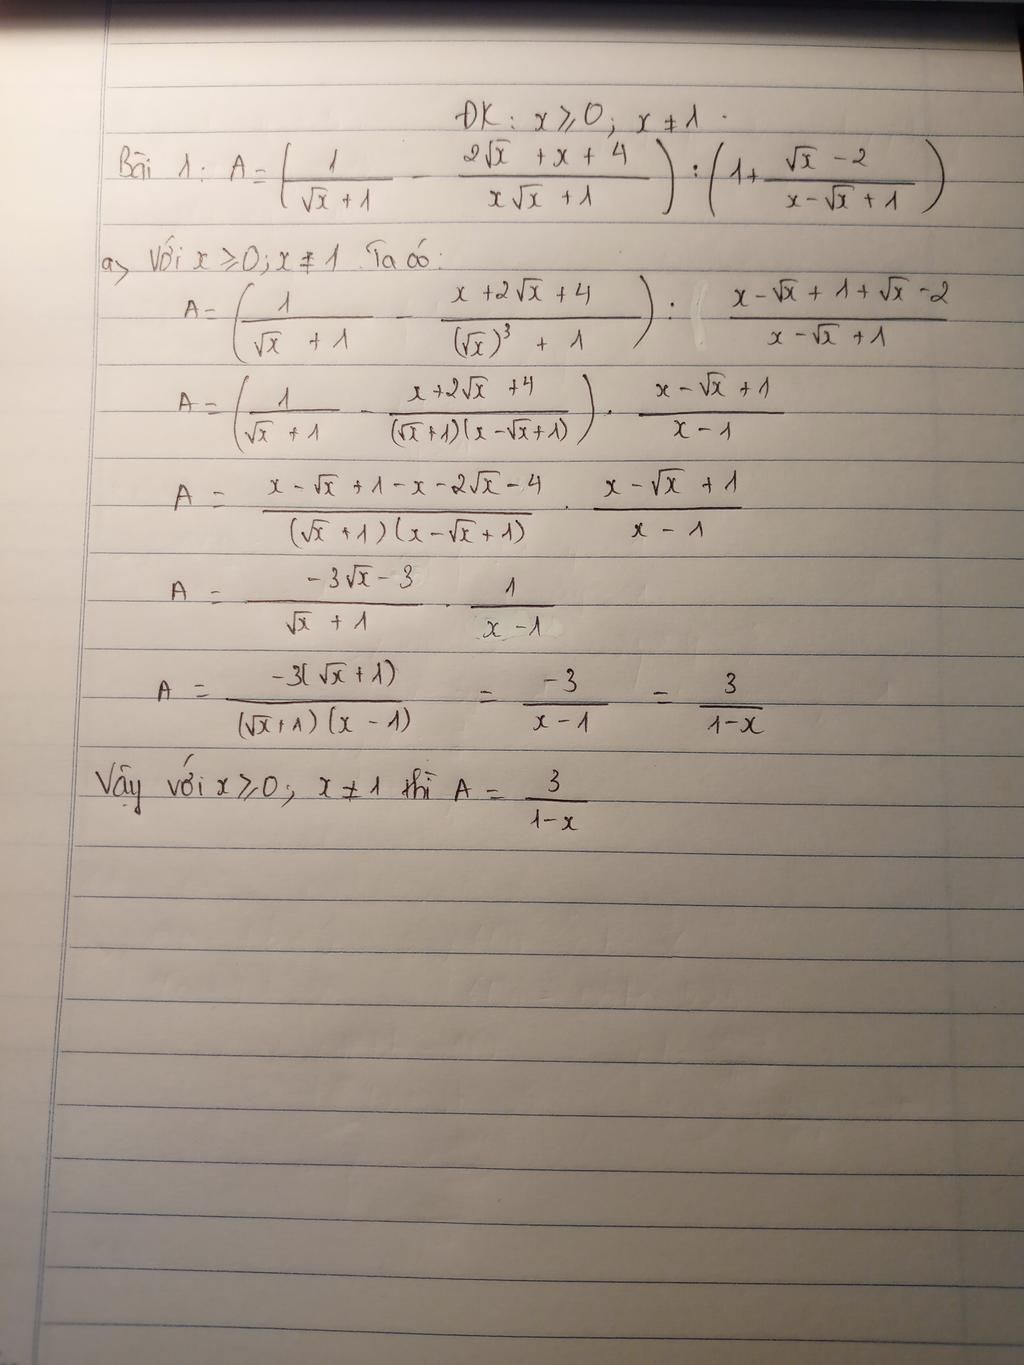 ĐK: x ⩾ 0; x ≠ 1.
Bài 1: A = (1/(√x + 1) - (2√x + x + 4)/(x√x + 1)) : (1 + (√x - 2)/(x - √x + 1))
a> Với x ⩾ 0; x ≠ 1 Ta có:
A = (1/(√x + 1) - (x + 2√x + 4)/((√x)³ + 1)) : (x - √x + 1 + √x - 2)/(x - √x + 1)
A = (1/(√x + 1) - (x + 2√x + 4)/((√x + 1)(x - √x + 1))) . (x - √x + 1)/(x - 1)
A = (x - √x + 1 - x - 2√x - 4)/((√x + 1)(x - √x + 1)) . (x - √x + 1)/(x - 1)
A = (-3√x - 3)/(√x + 1) . 1/(x - 1)
A = (-3(√x + 1))/((√x + 1)(x - 1)) = -3/(x - 1) = 3/(1 - x)
Vậy với x ⩾ 0; x ≠ 1 thì A = 3/(1 - x)